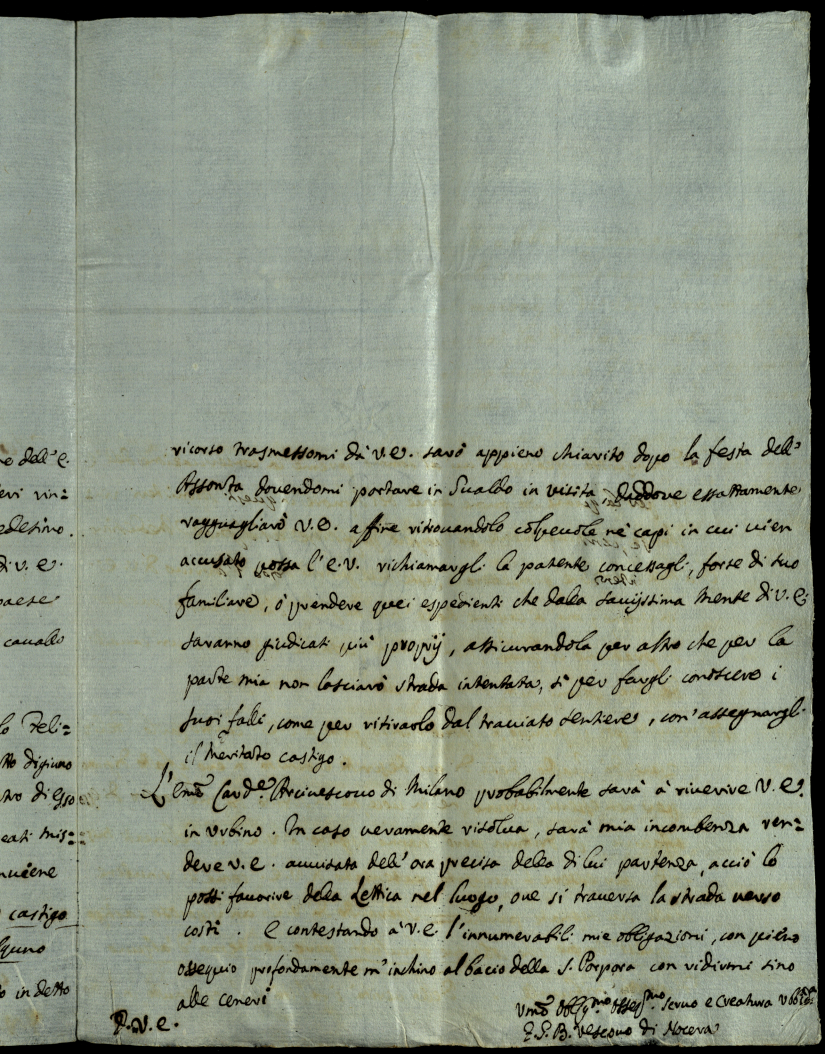 no dell'E.
evi vin=
edesimo.
di V. E.
paese
cavallo
lo Feli=
tto digiuno
tro di esso
eati mis=
castigo
lguno
o in detto
ricorso trasmessomi da V. E. sarò appieno chiarito dopo la festa dell'
Assonta dovendomi portare in Gualdo in visita, daddove essattamente
ragguagliarò V. E. affine ritrovandolo colpevole nè capi in cui vien
accusato possa l'E. V. richiamargli la patente concessagli, forse di suo
familiare, ò prendere quei espedienti che dalla saviissima Mente di V. E.
saranno giudicati più proprij, assicurandola per altro che per la
parte mia non lasciarò strada intentata, sì per fargli conoscere i
suoi falli, come per ritirarlo dal tracciato sentiere, con'assegnargli
il meritato castigo.
L'Emō Card.e Arcivescovo di Milano probabilmente sarà à riverire V. E.
in Urbino. In caso veramente risolva, sarà mia incombenza ren=
dere V. E. avvisata dell'ora precisa della di lui partenza, acciò lo
possi favorire della Lettica nel luogo, ove si traversa la strada verso
costì. E contestando à V. E. l'innumerabili mie obligazioni, con pieno
ossequio profondamente m'inchino al bacio della S. Porpora con ridirmi sino
alle ceneri
D. V. E.
Umō Obblg.mo Osseq.mo servo e Creatura
Vescovo di Nocera